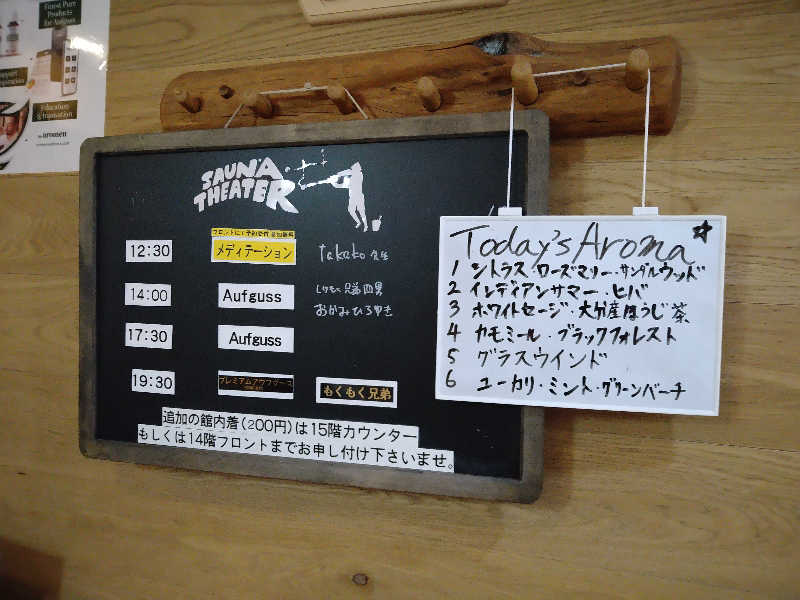 Finest Pure
Products
for Aufguss
Support
Education
& Information
aromen
SAUNA
THEATER
12:30
メディテーション
takako 先生
14:00
Aufguss
おかみひろゆき
17:30
Aufguss
19:30
プレミアムアウフグース
もくもく兄弟
追加の館内着(200円)は15階カウンター
もしくは14階フロントまでお申し付け下さいませ。
Today's Aroma
1 シトラス・ローズマリー・サンダルウッド
2 インディアンサマー・ヒバ
3 ホワイトセージ・大分産ほうじ茶
4 カモミール・ブラックフォレスト
5 グラスウインド
6 ユーカリ・ミント・グリーンバーチ